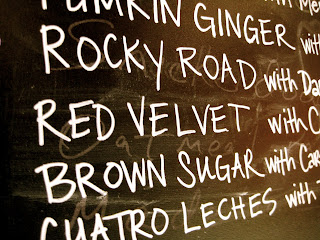 PUMPKIN GINGER with
ROCKY ROAD with Da
RED VELVET with C
BROWN SUGAR with Car
CUATRO LECHES with